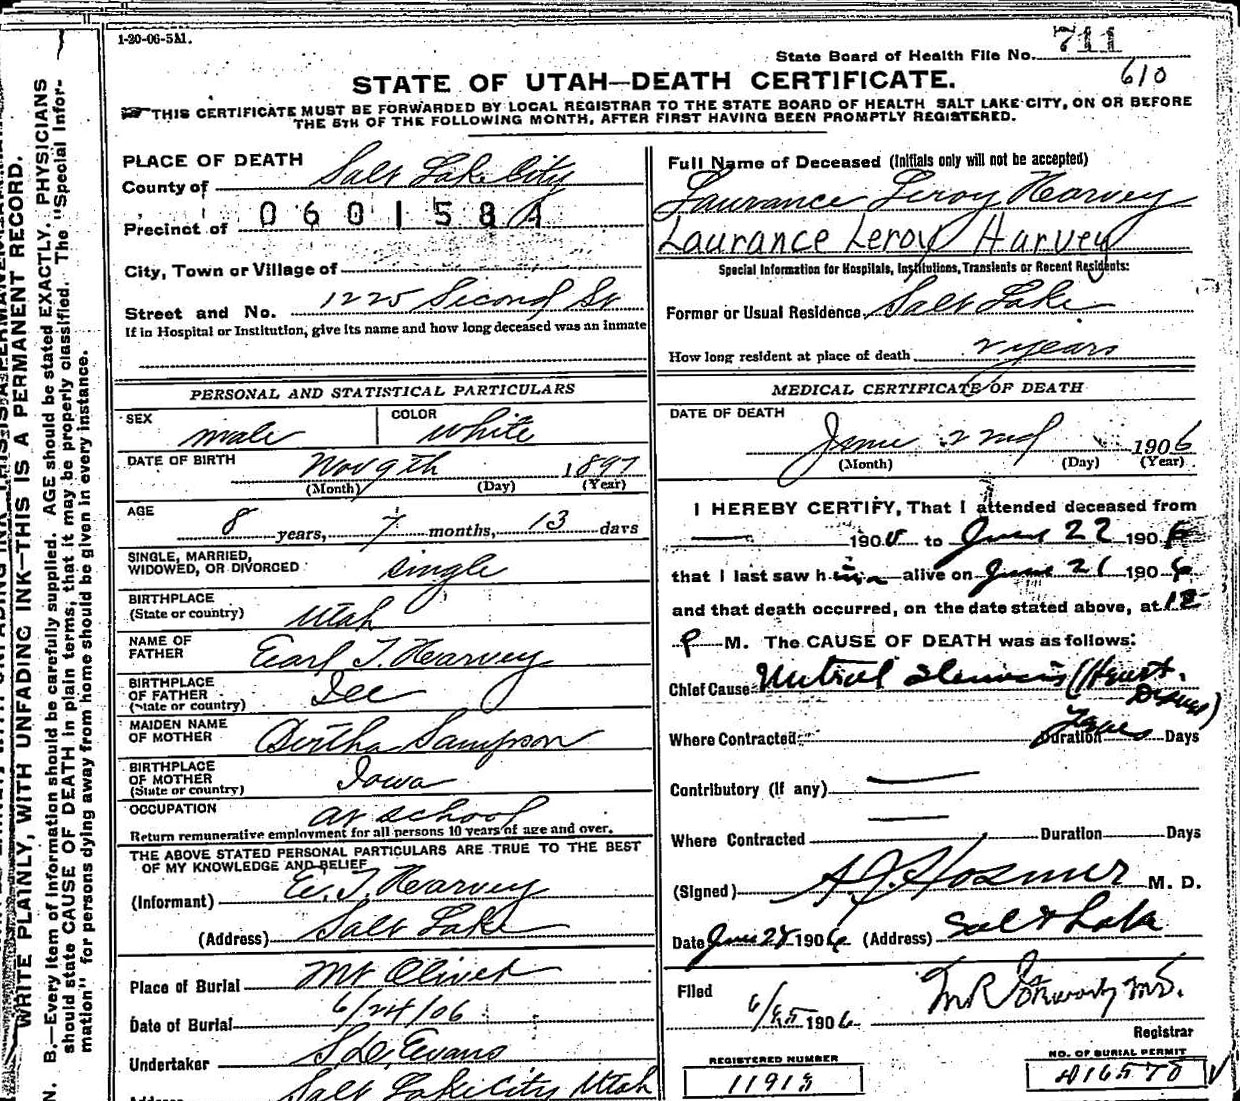 1-20-06-5M.
State Board of Health File No. 711
610
STATE OF UTAH—DEATH CERTIFICATE.
THIS CERTIFICATE MUST BE FORWARDED BY LOCAL REGISTRAR TO THE STATE BOARD OF HEALTH SALT LAKE CITY, ON OR BEFORE
THE 5TH OF THE FOLLOWING MONTH, AFTER FIRST HAVING BEEN PROMPTLY REGISTERED.
WRITE PLAINLY, WITH UNFADING INK—THIS IS A PERMANENT RECORD.
N. B.—Every item of information should be carefully supplied. AGE should be stated EXACTLY. PHYSICIANS
should state CAUSE OF DEATH in plain terms, that it may be properly classified. The "Special Infor-
mation" for persons dying away from home should be given in every instance.
PLACE OF DEATH
County of Salt Lake City
Precinct of 0601584
City, Town or Village of
Street and No. 1225 Second St
If in Hospital or Institution, give its name and how long deceased was an inmate
PERSONAL AND STATISTICAL PARTICULARS
SEX male COLOR white
DATE OF BIRTH Nov 9th 1897
(Month) (Day) (Year)
AGE 8 years, 7 months, 13 days
SINGLE, MARRIED,
WIDOWED, OR DIVORCED single
BIRTHPLACE
(State or country) Utah
NAME OF
FATHER Earl T. Harvey
BIRTHPLACE
OF FATHER
(State or country) Ill
MAIDEN NAME
OF MOTHER Bertha Sampson
BIRTHPLACE
OF MOTHER
(State or country) Iowa
OCCUPATION at school
Return remunerative employment for all persons 10 years of age and over.
THE ABOVE STATED PERSONAL PARTICULARS ARE TRUE TO THE BEST
OF MY KNOWLEDGE AND BELIEF
(Informant) E. T. Harvey
(Address) Salt Lake
Place of Burial Mt Olivet
Date of Burial 6/24/06
Undertaker S. D. Evans
Address Salt Lake City Utah
Full Name of Deceased (Initials only will not be accepted)
Laurance Leroy Harvey
Laurance Leroy Harvey
Special Information for Hospitals, Institutions, Transients or Recent Residents:
Former or Usual Residence, Salt Lake
How long resident at place of death 2 years
MEDICAL CERTIFICATE OF DEATH
DATE OF DEATH
June 22nd 1906
(Month) (Day) (Year)
I HEREBY CERTIFY, That I attended deceased from
190 to June 22 1906
that I last saw him alive on June 21 1906
and that death occurred, on the date stated above, at 12
P M. The CAUSE OF DEATH was as follows:
Chief Cause Mitral Stenosis (Heart
Disease)
Where Contracted Duration Years Days
Contributory (If any)
Where Contracted Duration Days
(Signed) A. J. Hosmer M. D.
Date June 24 1906 (Address) Salt Lake
Filed 6/25 1906
Registrar
REGISTERED NUMBER
NO. OF BURIAL PERMIT